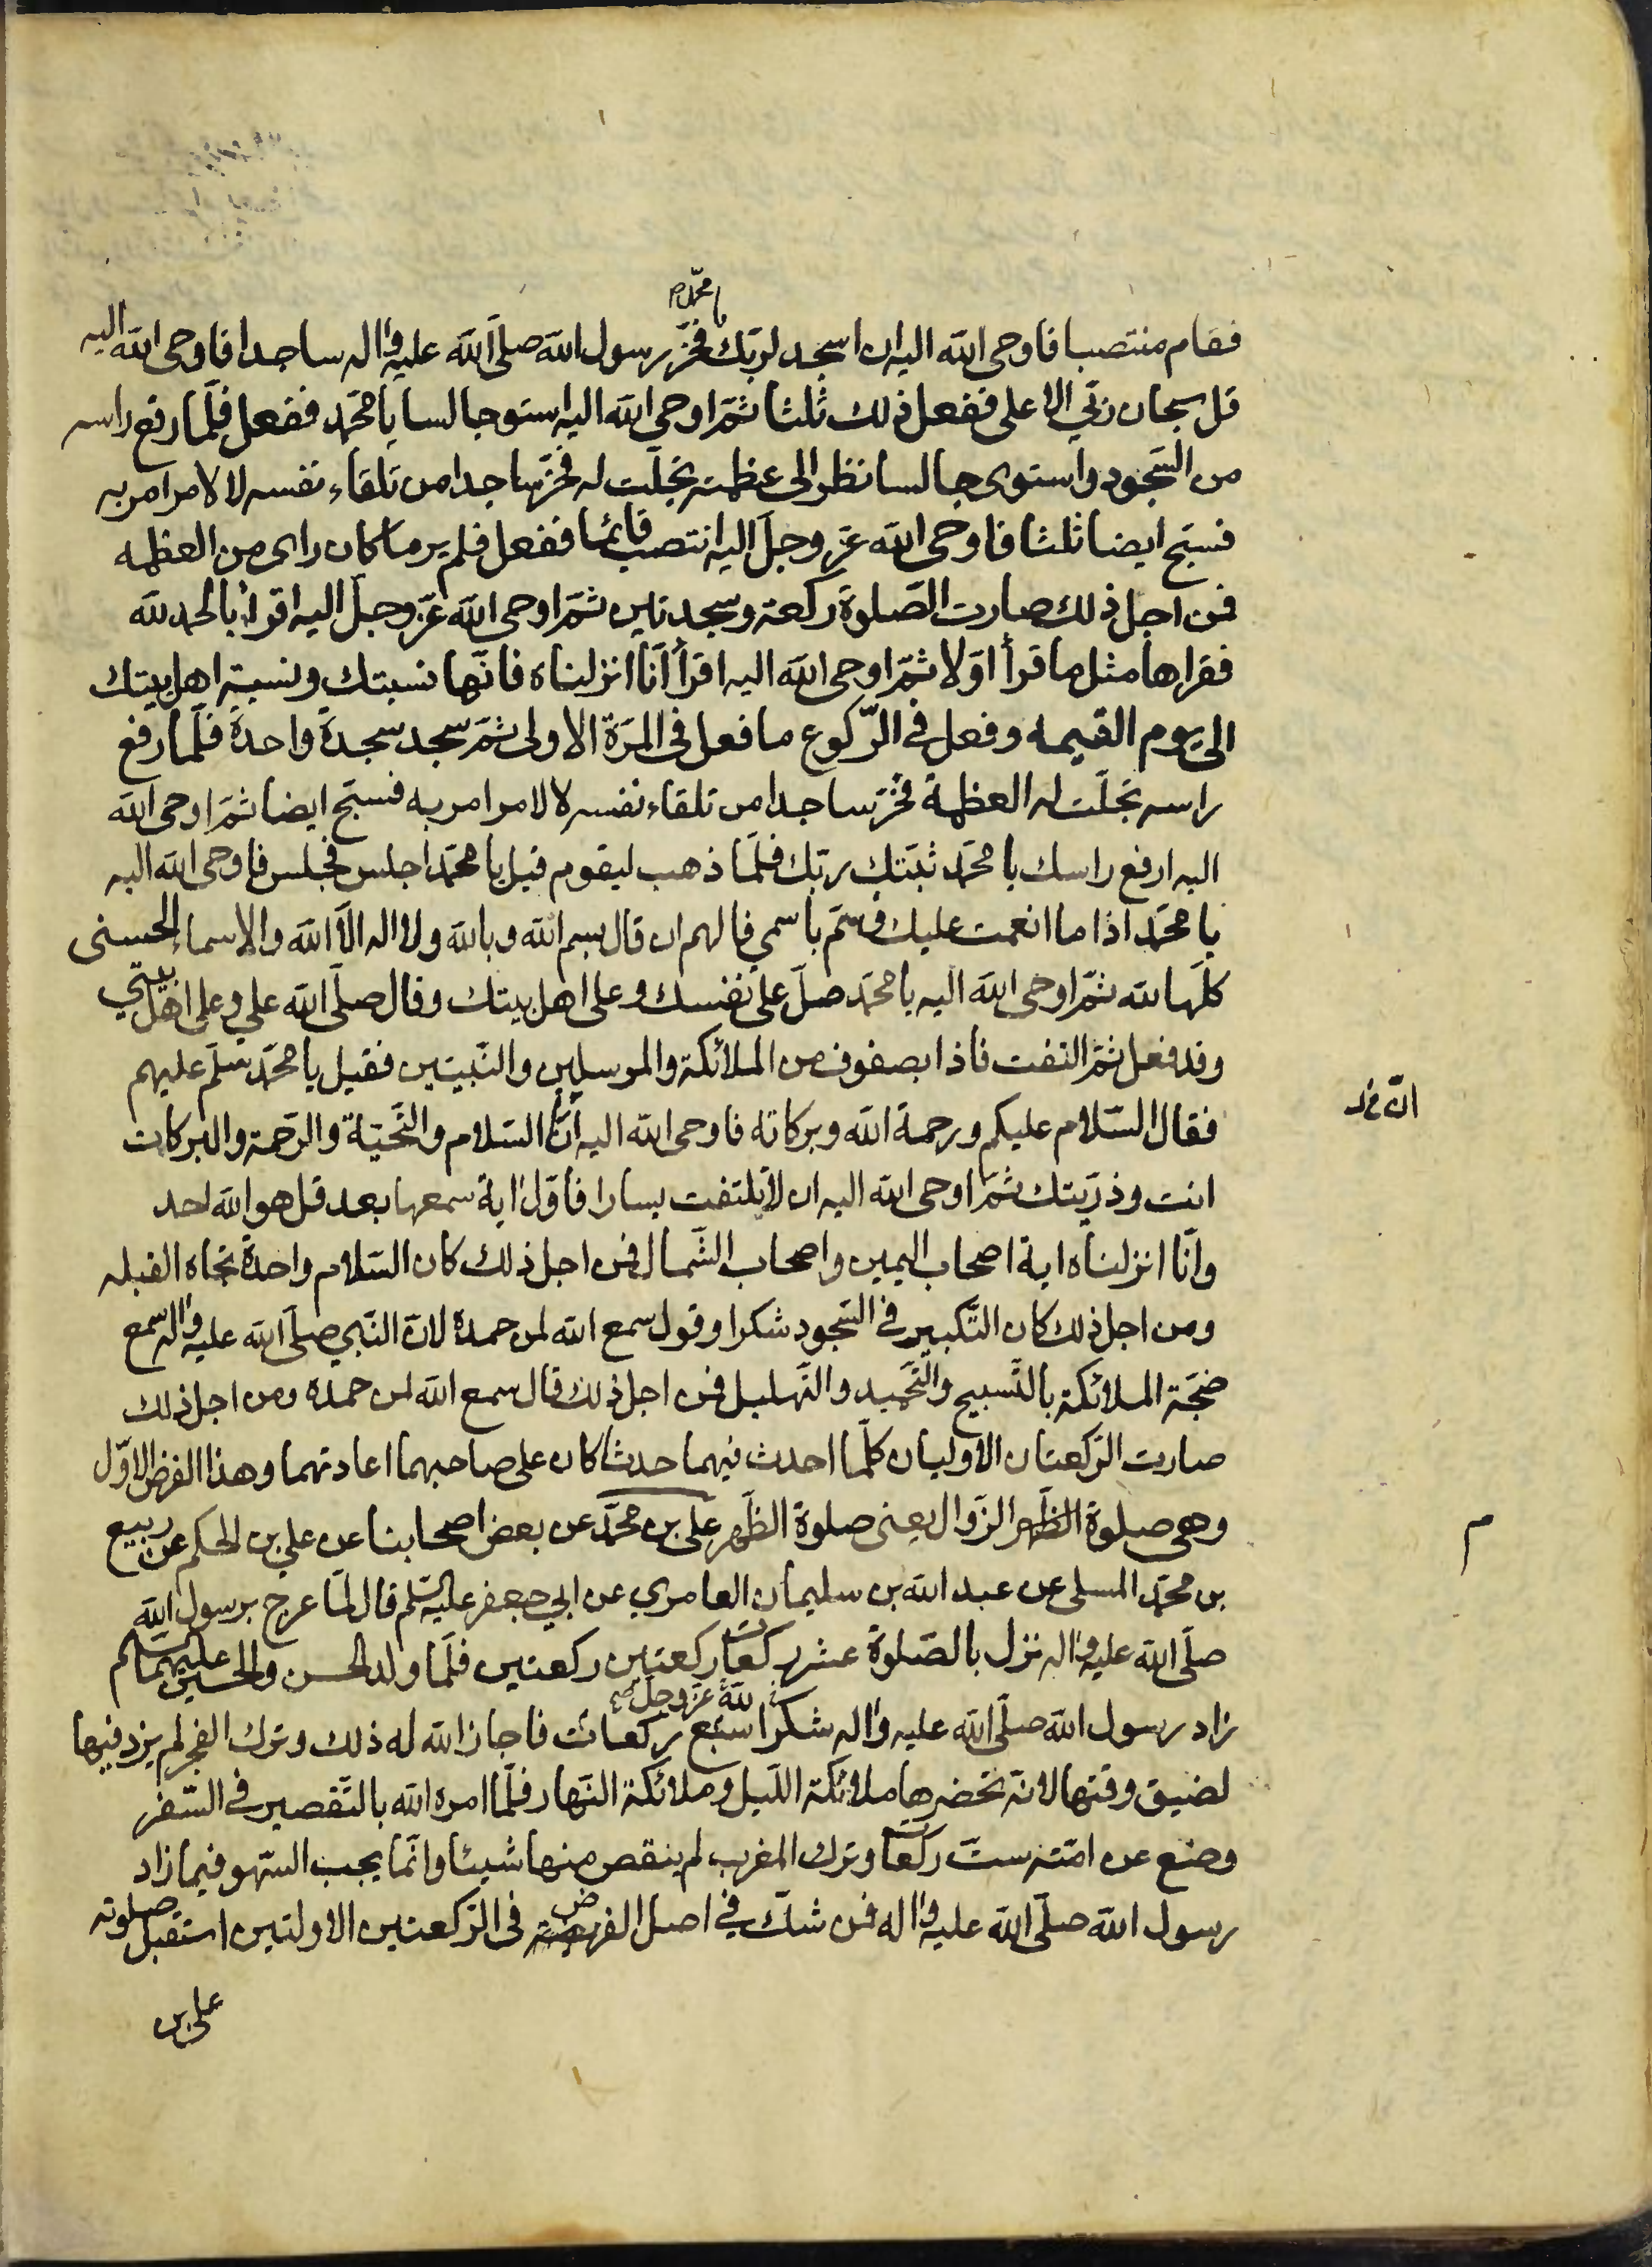 يا محمد
فقام منتصبا فاوحى الله اليه ان اسجد لربك فخر رسول الله صلى الله عليه واله ساجدا فاوحى الله اليه
قل سبحان ربي الاعلى ففعل ذلك ثلثا ثم اوحى الله اليه استو جالسا يا محمد ففعل فلما رفع راسه
من السجود واستوى جالسا نظر الى عظمته تجلت له فخر ساجدا من تلقاء نفسه لا لامر امر به
فسبح ايضا ثلثا فاوحى الله عز وجل اليه انتصب قائما ففعل فلم ير ما كان راى من العظمه
فمن اجل ذلك صارت الصلوة ركعة وسجدتين ثم اوحى الله عز وجل اليه اقرا بالحمد لله
فقراها مثل ما قرأ اولا ثم اوحى الله اليه اقرأ انا انزلناه فانها نسبتك ونسبة اهل بيتك
الى يوم القيمه وفعل في الركوع ما فعل في المرة الاولى ثم سجد سجدة واحدة فلما رفع
راسه تجلت له العظمة فخر ساجدا من تلقاء نفسه لا لامر امر به فسبح ايضا ثم اوحى الله
اليه ارفع راسك يا محمد ثبتك ربك فلما ذهب ليقوم قيل يا محمد اجلس فجلس فاوحى الله اليه
يا محمد اذا ما انعمت عليك فسم باسمي فالهم ان قال بسم الله وبالله ولا اله الا الله والاسماء الحسنى
كلها لله ثم اوحى الله اليه يا محمد صل على نفسك وعلى اهل بيتك وقال صلى الله علي وعلى اهل بيتي
وقد فعل ثم التفت فاذا بصفوف من الملائكة والمرسلين والنبيين فقيل يا محمد سلم عليهم
فقال السلام عليكم ورحمة الله وبركاته فاوحى الله اليه ان السلام والتحية والرحمة والبركات
انت وذريتك ثم اوحى الله اليه ان لا يلتفت يسارا فاول اية سمعها بعد قل هو الله احد
وانا انزلناه اية اصحاب اليمين واصحاب الشمال فمن اجل ذلك كان السلام واحدة تجاه القبله
ومن اجل ذلك كان التكبير في السجود شكرا وقول سمع الله لمن حمده لان النبي صلى الله عليه واله سمع
ضجة الملائكة بالتسبيح والتحميد والتهليل فمن اجل ذلك قال سمع الله لمن حمده ومن اجل ذلك
صارت الركعتان الاوليان كلما احدث فيهما حدثا كان على صاحبهما اعادتهما وهذا الفرض الاول
وهي صلوة الظهر الزوال يعني صلوة الظهر علي بن محمد عن بعض اصحابنا عن علي بن الحكم عن ربيع
م
بن محمد المسلي عن عبد الله بن سليمان العامري عن ابي جعفر عليه السلم قال لما عرج برسول الله
صلى الله عليه واله نزل بالصلوة عشر ركعات ركعتين ركعتين فلما ولد الحسن والحسين عليهما السلم
لله عز وجل صح
زاد رسول الله صلى الله عليه واله شكرا سبع ركعات فاجاز الله له ذلك وترك الفجر لم يزد فيها
لضيق وقتها لانه تحضرها ملائكة الليل وملائكة النهار فلما امره الله بالتقصير في السفر
وضع عن امته ست ركعات وترك المغرب لم ينقص منها شيئا وانما يجب السهو فيما زاد
رسول الله صلى الله عليه واله فمن شك في اصل الفرض في الركعتين الاولتين استقبل صلوته
علي بن